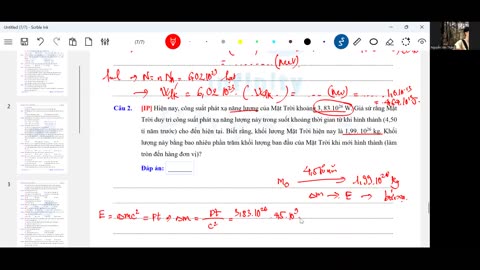 Untitled (7/7) - Scribble Ink
(7/7)
(MeV)
1 mol → N = n N_A = 6,02.10²³ hạt
→ W_lk = 6,02.10²³ . (W_lk) = ... (MeV) = ... 1,6.10⁻¹³
Câu 2. [IP] Hiện nay, công suất phát xạ năng lượng của Mặt Trời khoảng 3,83.10²⁶ W. Giả sử rằng Mặt
Trời duy trì công suất phát xạ năng lượng này trong suốt khoảng thời gian từ khi hình thành (4,50
tỉ năm trước) cho đến hiện tại. Biết rằng, khối lượng Mặt Trời hiện nay là 1,99. 10³⁰ kg. Khối
lượng này bằng bao nhiêu phần trăm khối lượng ban đầu của Mặt Trời khi mới hình thành (làm
tròn đến hàng đơn vị)?
Đáp án:
M₀ → 1,99.10 kg
Δm → E →
E = Δmc² = Pt → Δm = Pt / c² = 3,83.10²⁶ . 4,5.10⁹
2
3